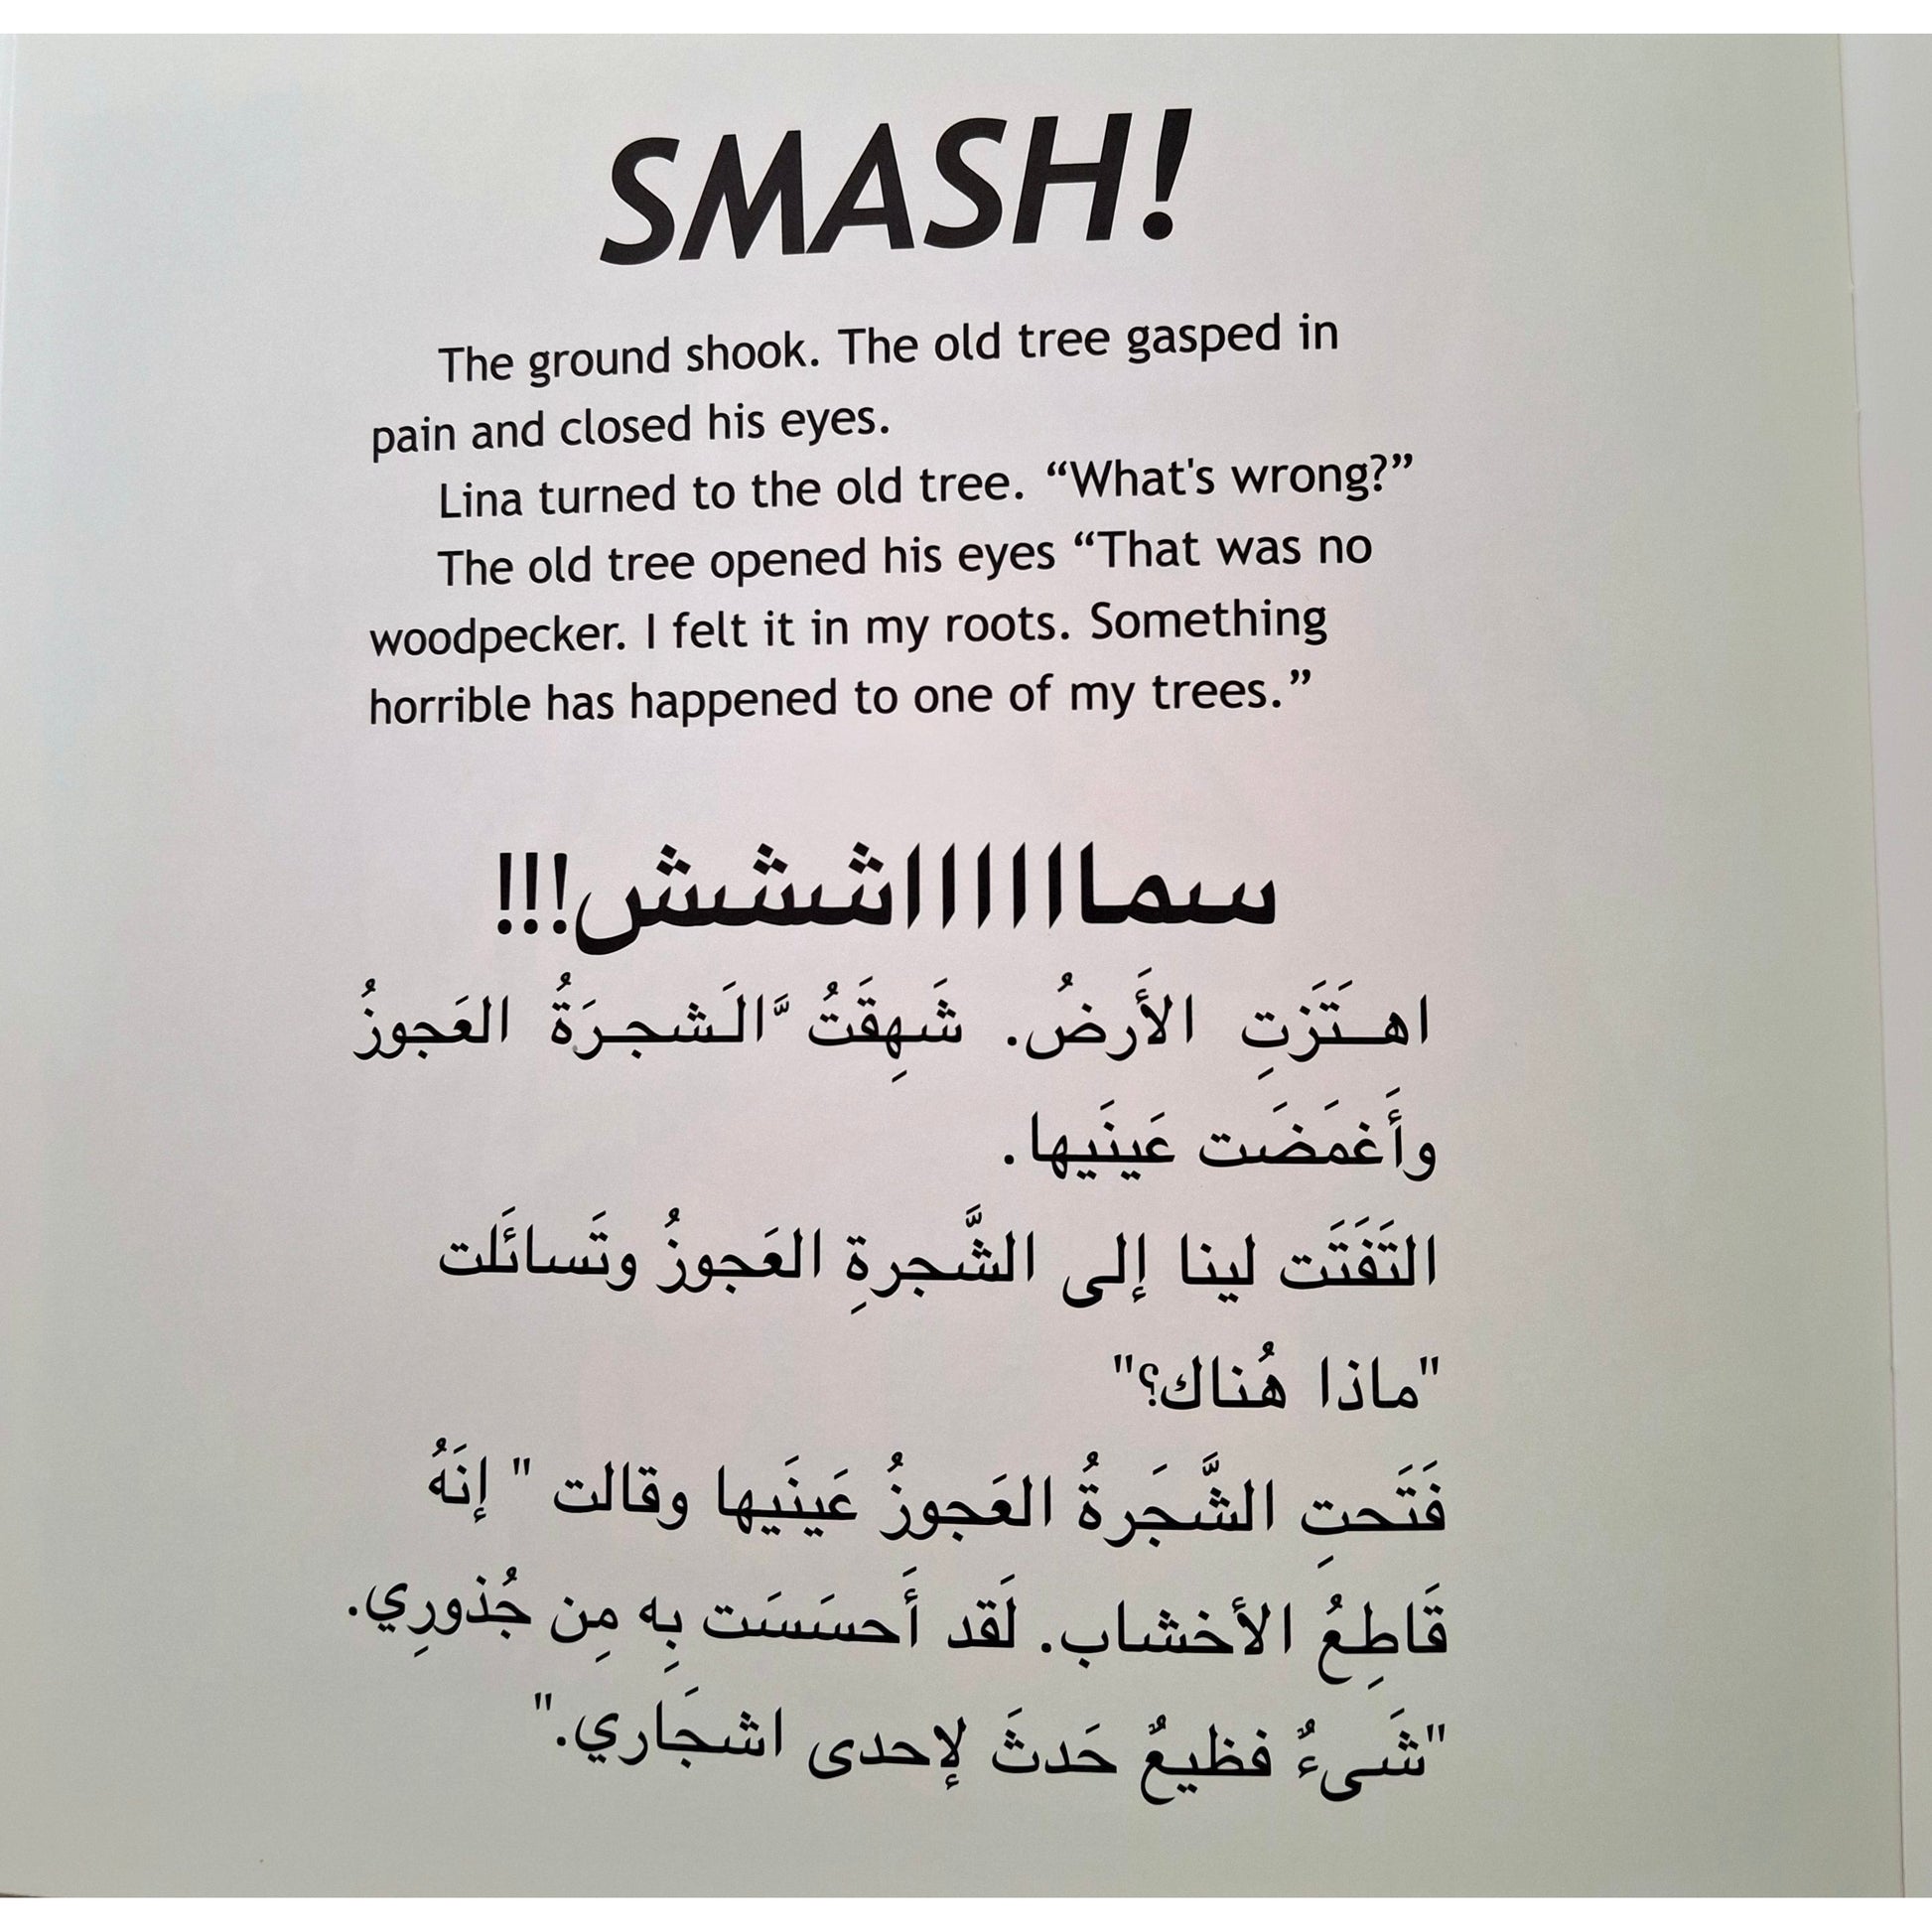 SMASH!
The ground shook. The old tree gasped in
pain and closed his eyes.
Lina turned to the old tree. “What's wrong?”
The old tree opened his eyes “That was no
woodpecker. I felt it in my roots. Something
horrible has happened to one of my trees.”
سمااااااششش!!!
اهـتَزَتِ الأَرضُ. شَهِقَتُ َّالَشجرَةُ العَجوزُ
وأَغمَضَت عَينَيها.
التَفَتَت لينا إلى الشَّجرةِ العَجوزُ وتَسائَلت
"ماذا هُناك؟"
فَتَحتِ الشَّجَرةُ العَجوزُ عَينَيها وقالت " إنَهُ
قَاطِعُ الأخشاب. لَقد أَحسَسَت بِه مِن جُذورِي.
"شَىءٌ فظيعٌ حَدثَ لإحدى اشجَاري."